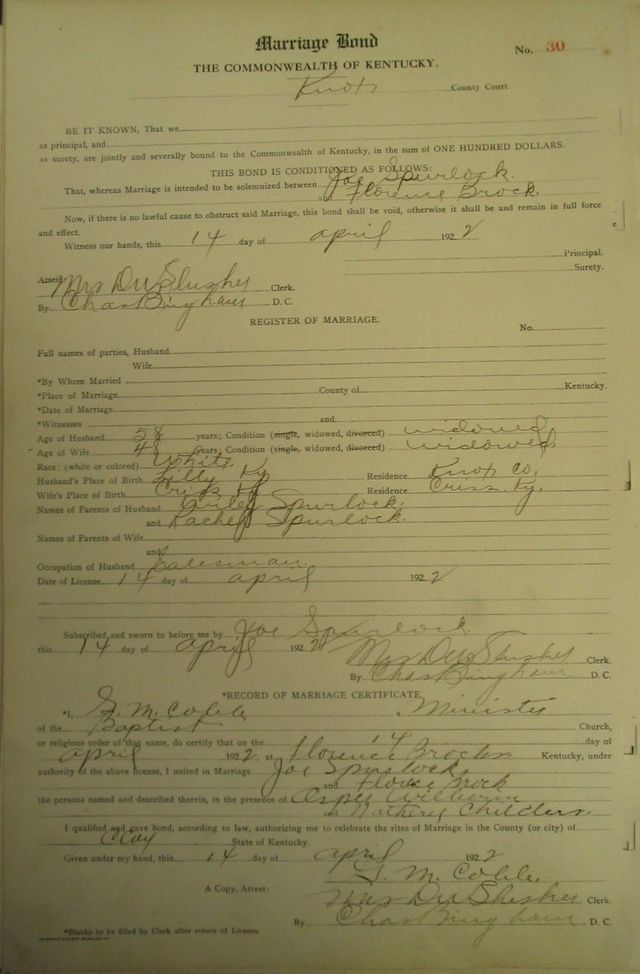 Marriage Bond
No. 30
THE COMMONWEALTH OF KENTUCKY.
Knox County Court
BE IT KNOWN, That we
as principal, and
as surety, are jointly and severally bound to the Commonwealth of Kentucky, in the sum of ONE HUNDRED DOLLARS.
THIS BOND IS CONDITIONED AS FOLLOWS:
That, whereas Marriage is intended to be solemnized between Joe Spurlock.
Florence Brock.
Now, if there is no lawful cause to obstruct said Marriage, this bond shall be void, otherwise it shall be and remain in full force
and effect.
Witness our hands, this 14 day of april 1922
Principal.
Surety.
Attest Mrs D W Slusher Clerk.
By Chas Bingham D. C.
REGISTER OF MARRIAGE.
No.
Full names of parties, Husband
Wife
*By Whom Married
*Place of Marriage County of Kentucky.
*Date of Marriage
*Witnesses and
Age of Husband 58 years; Condition (single, widowed, divorced) widowed
Age of Wife 48 years; Condition (single, widowed, divorced) widowed.
Race: (white or colored) White.
Husband's Place of Birth Lilly Ky Residence Knox Co,
Wife's Place of Birth Ky Residence Ky.
Names of Parents of Husband Wiley Spurlock.
and Rachel Spurlock.
Names of Parents of Wife
and
Occupation of Husband Salesman.
Date of License 14 day of april 1922
Subscribed and sworn to before me by Joe Spurlock
this 14 day of april 1922 Mrs D W Slusher Clerk.
By Chas Bingham D. C.
*RECORD OF MARRIAGE CERTIFICATE
*I, M. a Minister
of the Baptist Church,
or religious order of that name, do certify that on the 14 day of
april 1922 at Florence Brocks Kentucky, under
authority of the above license, I united in Marriage Joe Spurlock,
and Florence Brock
the persons named and described therein, in the presence of
and Childers.
I qualified and gave bond, according to law, authorizing me to celebrate the rites of Marriage in the County (or city) of
Clay State of Kentucky.
Given under my hand, this 14 day of april 1922
M.
A Copy, Attest: Mrs D W Slusher Clerk.
By Chas Bingham D. C.
*Blanks to be filled by Clerk after return of License.